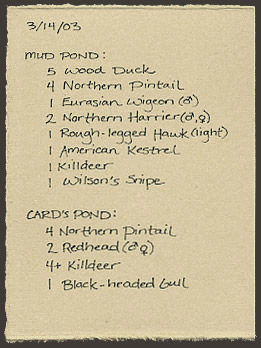 3/14/03
MUD POND:
5 Wood Duck
4 Northern Pintail
1 Eurasian Wigeon (♂)
2 Northern Harrier (♂,♀)
1 Rough-legged Hawk (light)
1 American Kestrel
1 Killdeer
1 Wilson's Snipe
CARD'S POND:
4 Northern Pintail
2 Redhead (♂♀)
4+ Killdeer
1 Black-headed Gull